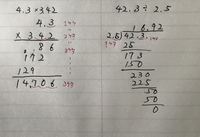 4.3 × 342
4.3
× 3.42
.86
172
129
14.706
42.3 ÷ 2.5
16.92
2.5)42.3
25
173
150
230
225
50
50
0